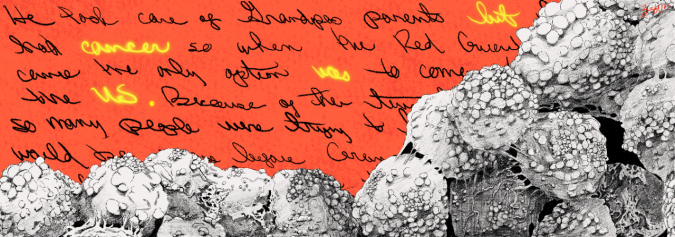 We took care of Grandpas parents but
had cancer so when the Red
came the only option was to come
the US. Because of the
so many people were trying to
would before